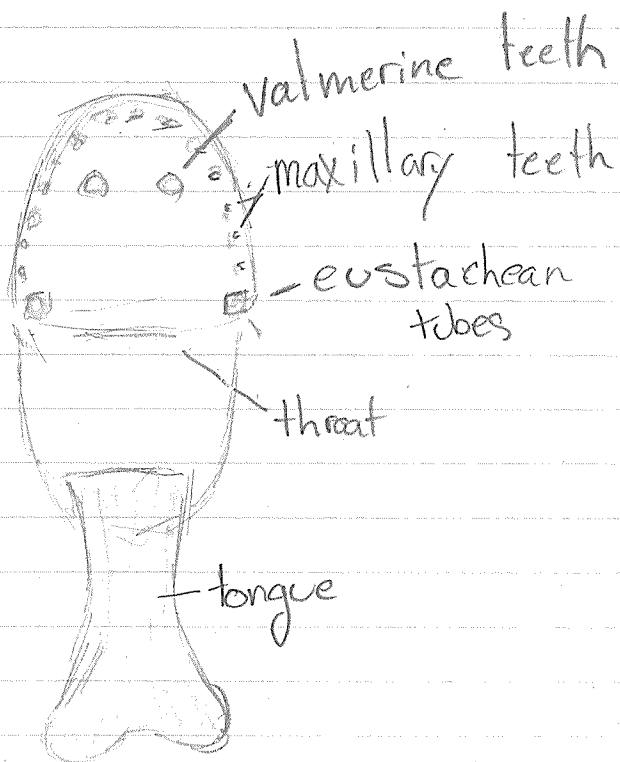 valmerine teeth
maxillary teeth
eustachean
tubes
throat
tongue